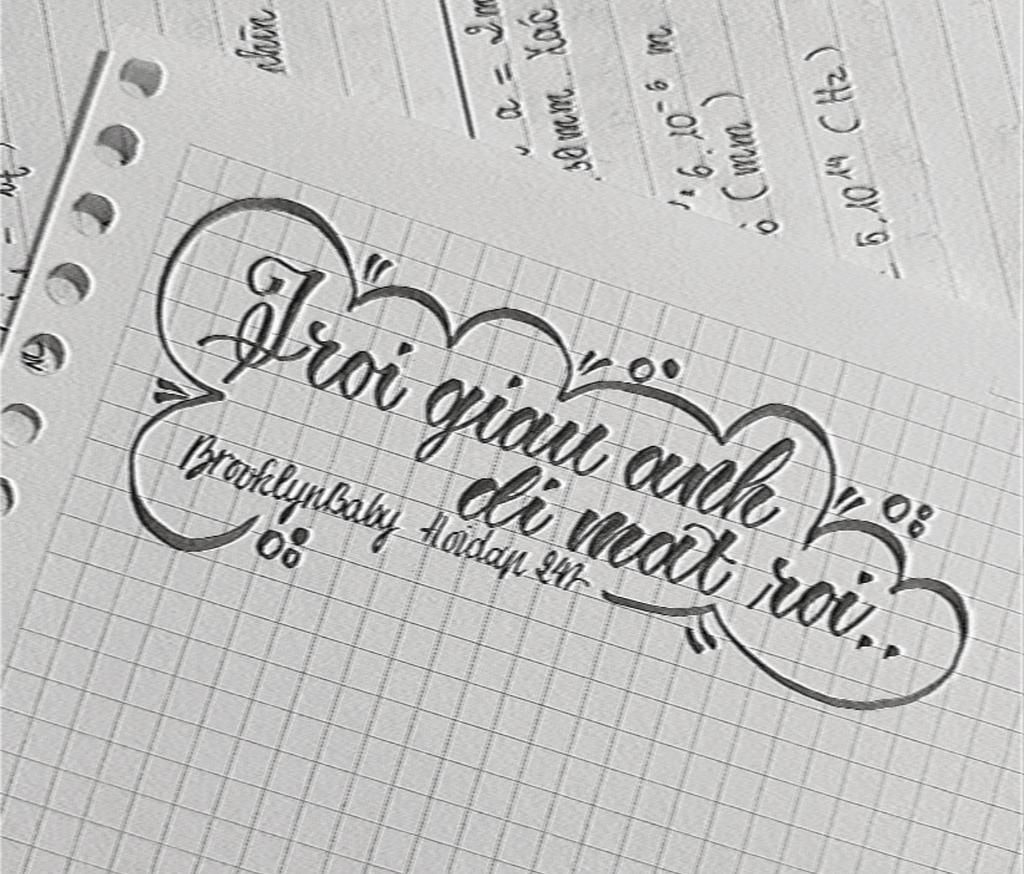 nhìn
a = 2m
50mm. Xác
6.10⁻⁶ m
(mm)
5.10¹⁴ (Hz)
Troi giau anh
đi mất roi..
BrooklynBaby Hoidap 247